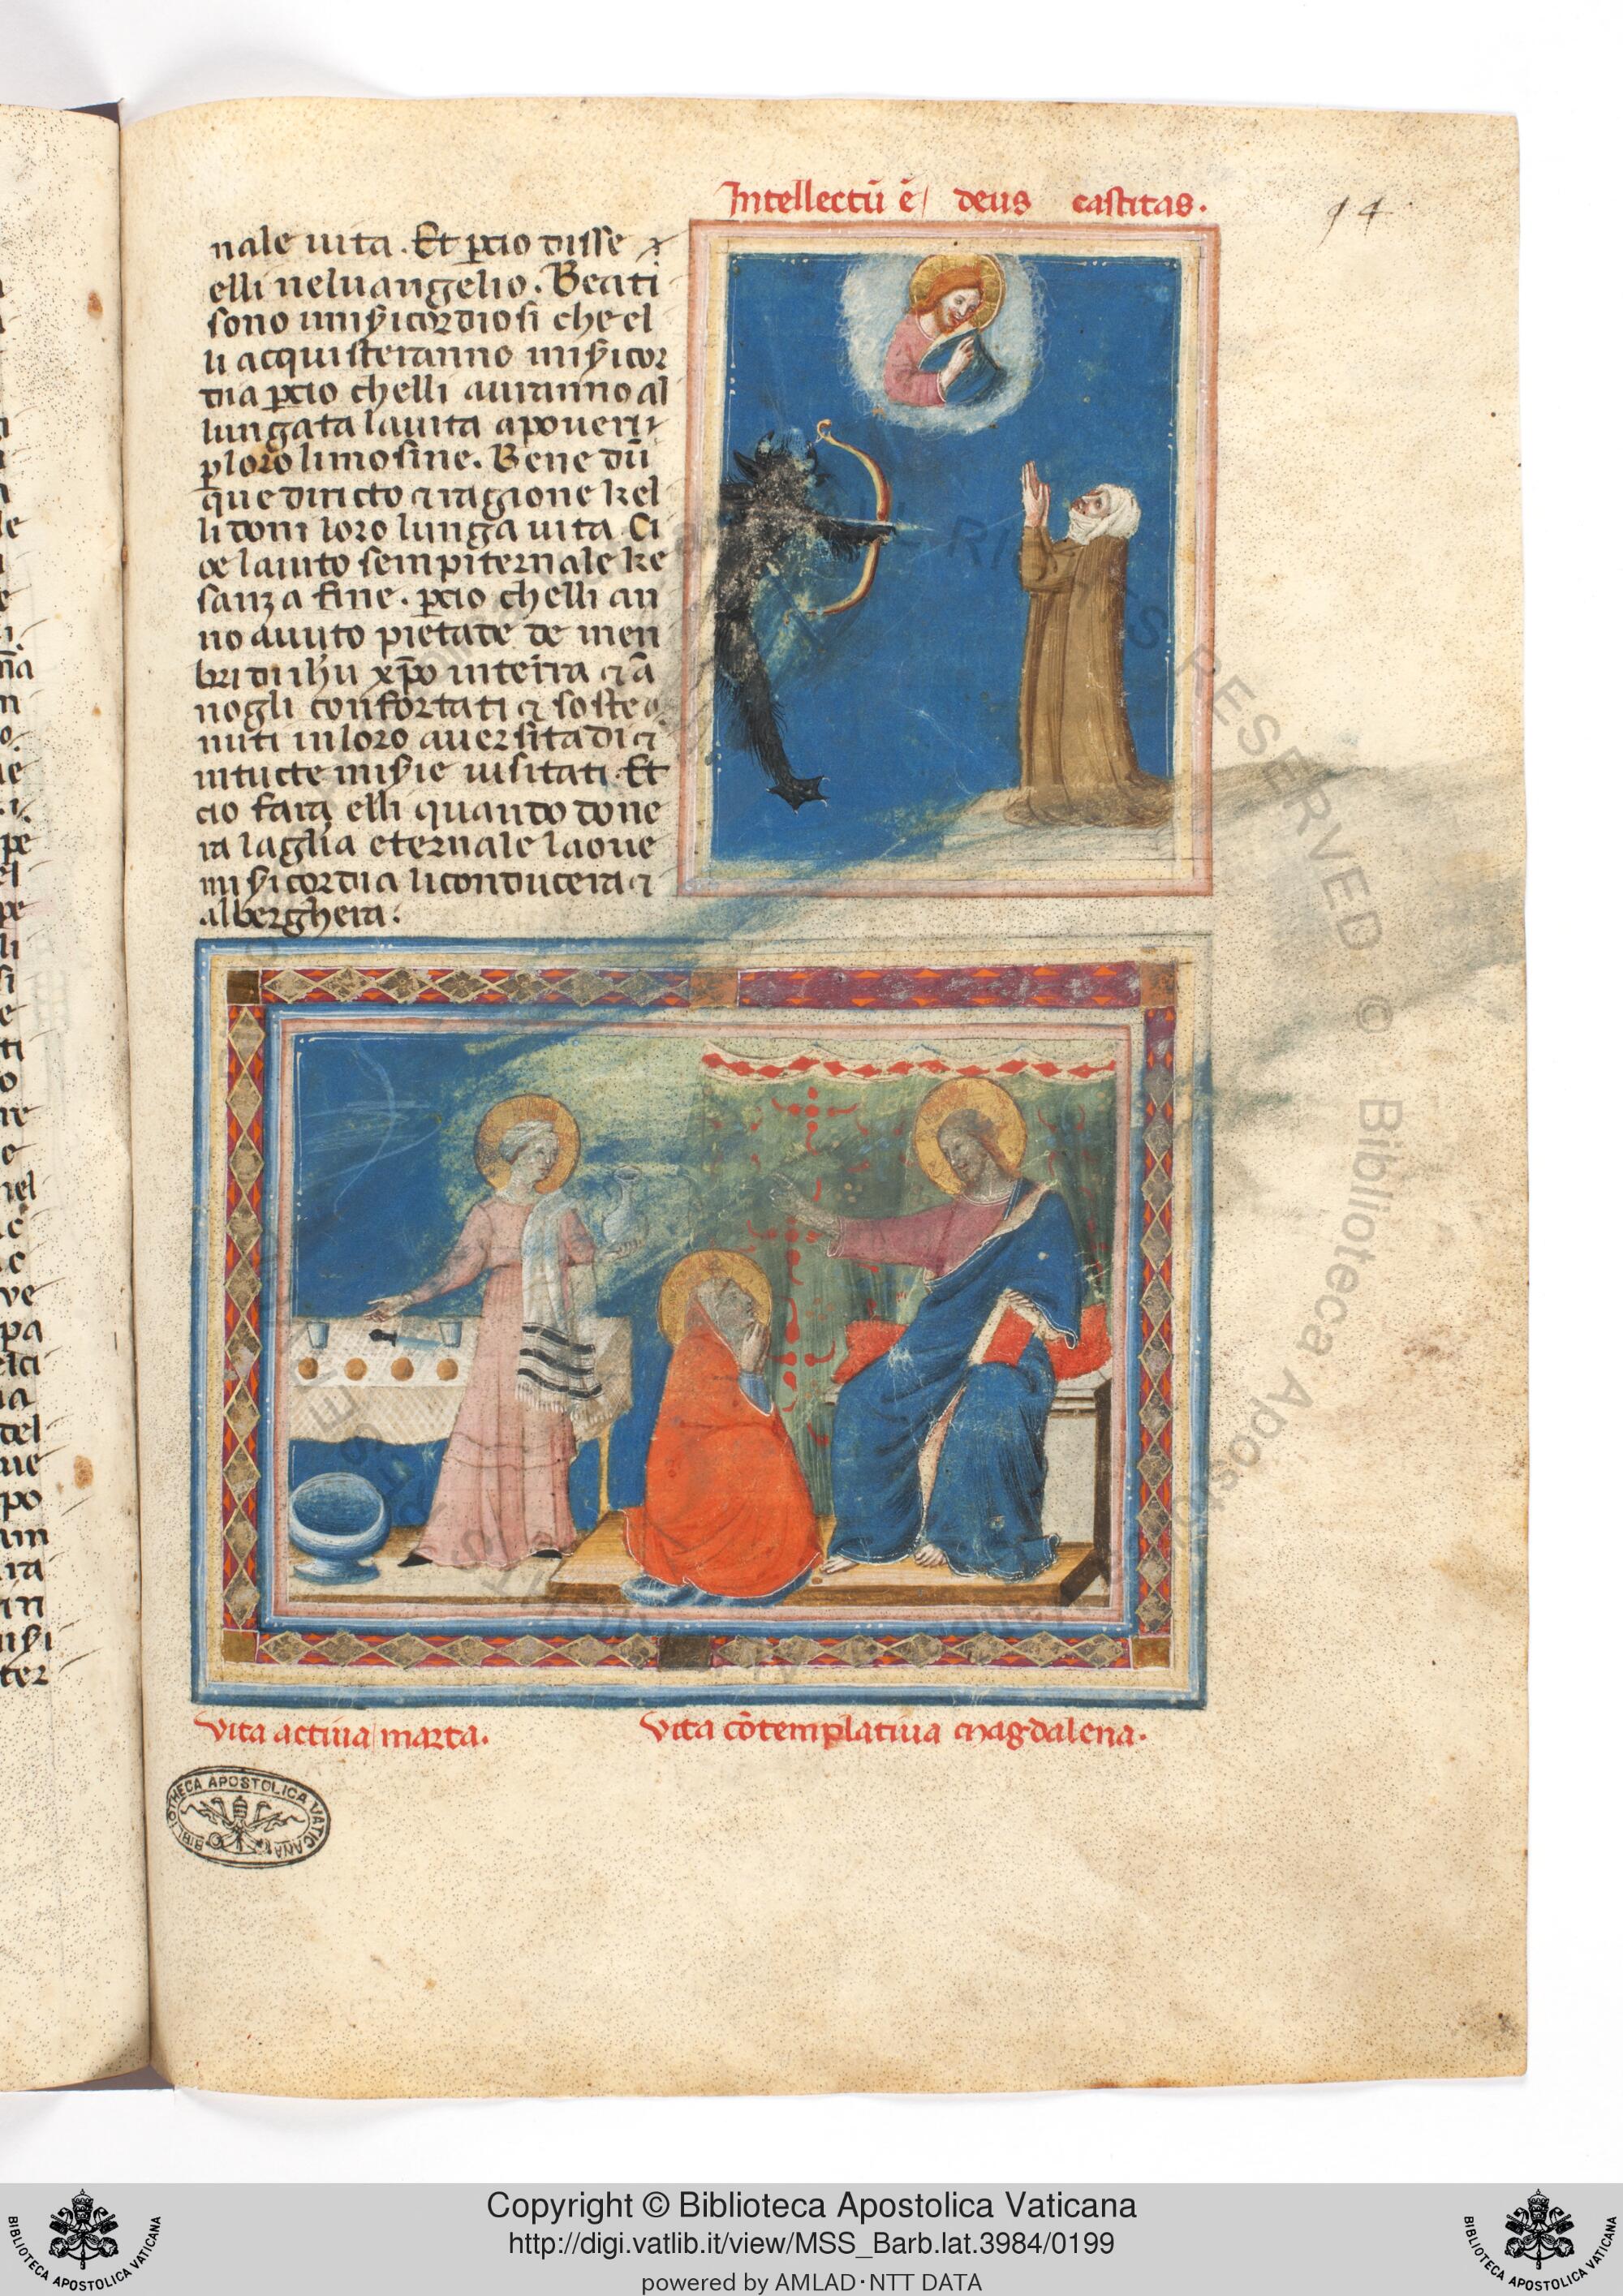 Intellectū ē deus castitas.
94
nale uita. Et pcio disse
elli neluangelio. Beati
sono misicordiosi che el
li acquisteranno misicor
dia pcio chelli auranno al
lungata lauita apoueri
p loro limosine. Bene dū
que diricto ⁊ ragione kel
li doni loro lunga uita. Ci
oe lauito sempiternale ke
sanza fine. pcio chelli an
no auuto pietade de men
bri di ihu xp̄o interra ⁊ ā
nogli confortati ⁊ soste
nuti inloro auersitadi ⁊
intucte misie uisitati. Et
cio fara elli quando done
ra laglia eternale laoue
misicordia liconducera ⁊
alberghera.
Vita actiua marta.
Vita cōtemplatiua magdalena.
BIBLIOTHECA APOSTOLICA VATICANA
RESERVED © Biblioteca Apostolica
Copyright © Biblioteca Apostolica Vaticana
http://digi.vatlib.it/view/MSS_Barb.lat.3984/0199
powered by AMLAD·NTT DATA
BIBLIOTECA APOSTOLICA VATICANA
BIBLIOTECA APOSTOLICA VATICANA